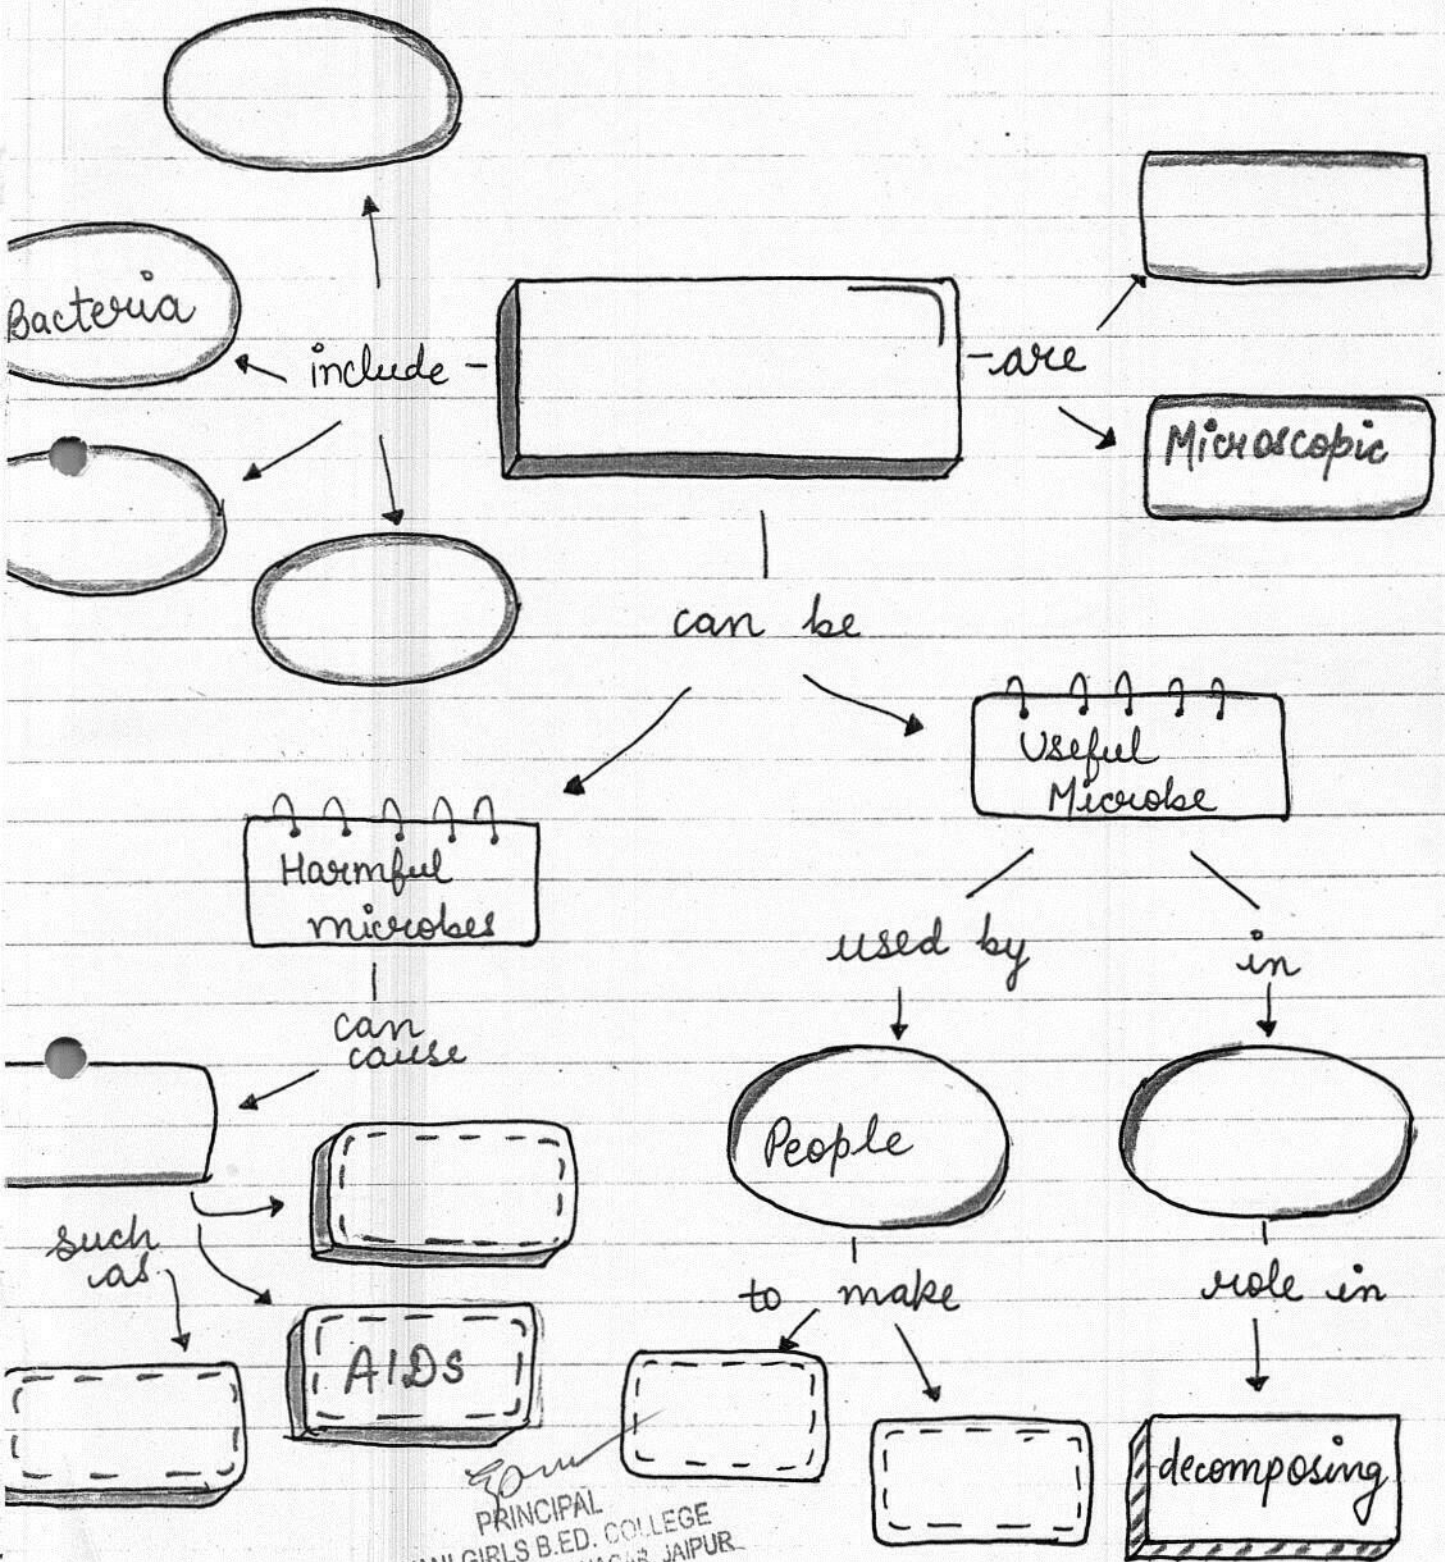 Bacteria
include
are
Microscopic
can be
Useful
Microbe
Harmful
microbes
used by
in
can
cause
People
such
as
to make
role in
AIDS
decomposing
PRINCIPAL
GIRLS B.ED. COLLEGE
JAIPUR